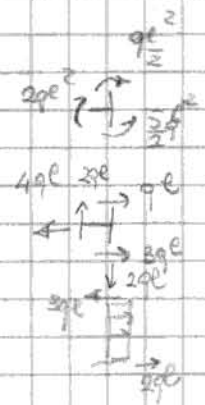 qℓ²/2
2qℓ²
3/2 qℓ²
4qℓ 2qℓ qℓ
3qℓ
2qℓ
3qℓ
2qℓ